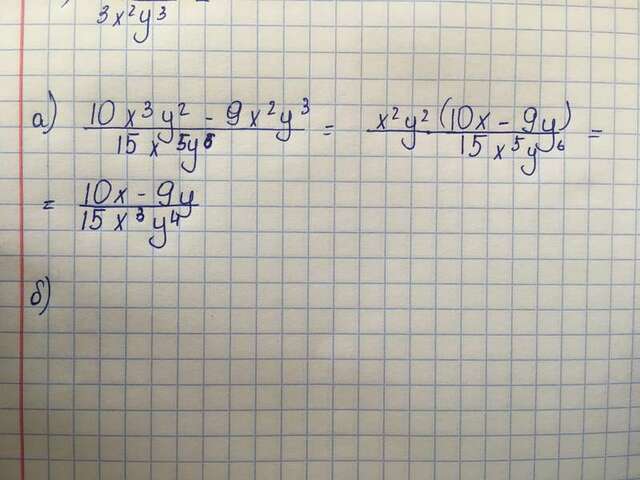 3x²y³
а) (10x³y² - 9x²y³)/(15x⁵y⁶) = (x²y²(10x - 9y))/(15x⁵y⁶) =
= (10x - 9y)/(15x³y⁴)
б)